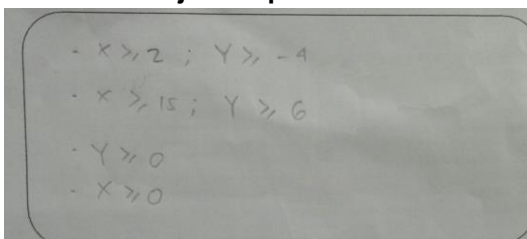 - X ⩾ 2 ; Y ⩾ -4
- X ⩾ 15 ; Y ⩾ 6
- Y ⩾ 0
- X ⩾ 0